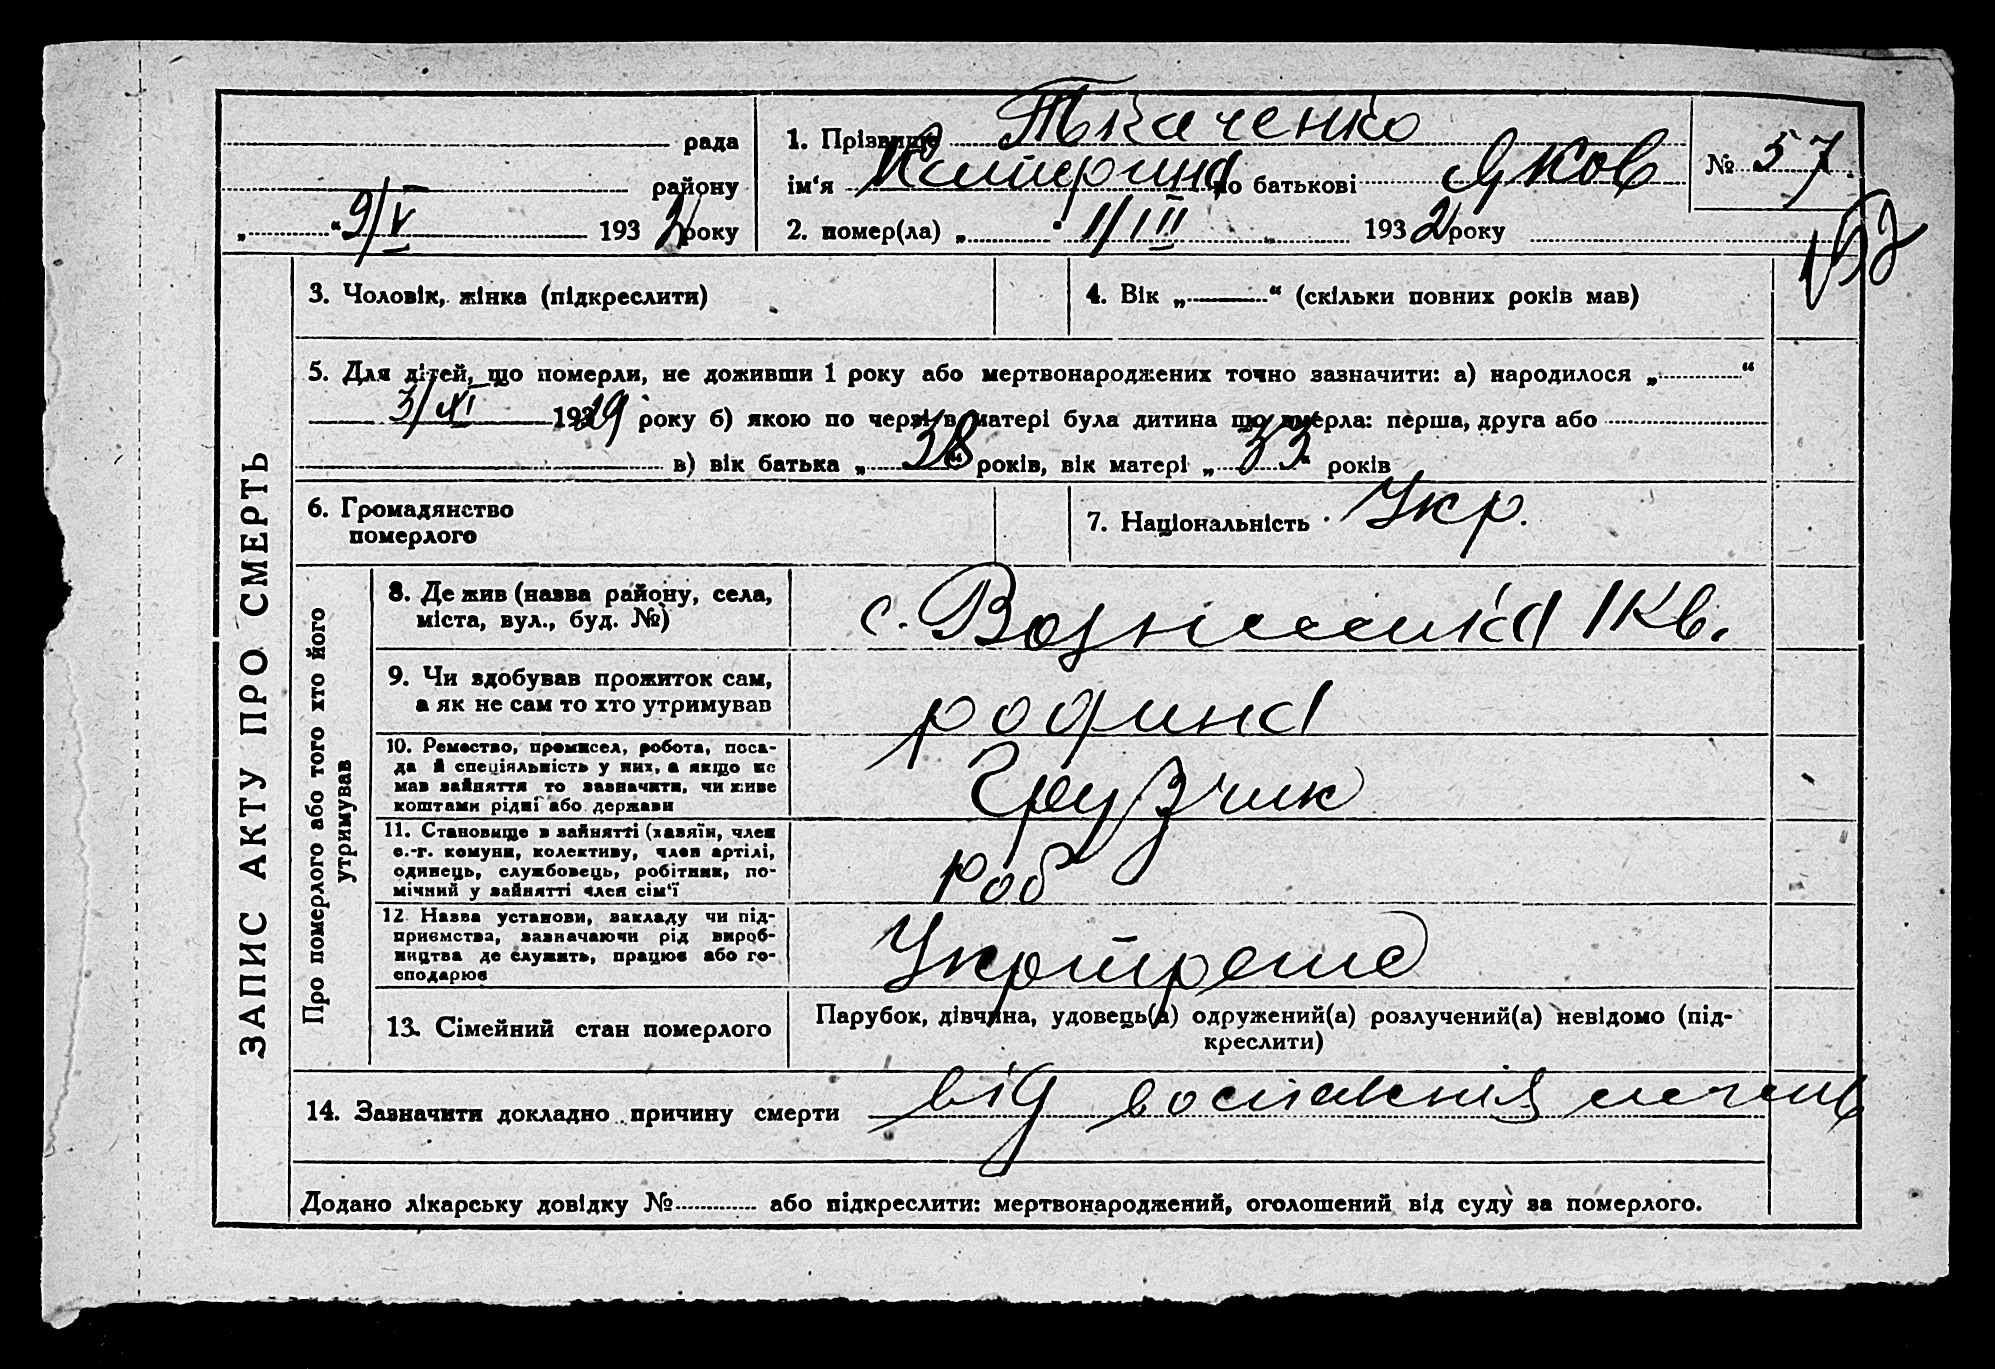 рада
району
„ “ 9/V 1932 року
1. Прізвище Ткаченко
ім‘я Катерина по батькові Яков
2. помер(ла) „ “ 1/III 1932 року
№ 57
3. Чоловік, жінка (підкреслити)
4. Вік „ “ (скільки повних років мав)
5. Для дітей, що померли, не доживши 1 року або мертвонароджених точно зазначити: а) народилося „ “
3/XI 1929 року б) якою по черзі в матері була дитина що вмерла: перша, друга або
в) вік батька „ 38 “ років, вік матері „ 33 “ років
6. Громадянство
померлого
7. Національність Укр.
ЗАПИС АКТУ ПРО СМЕРТЬ
Про померлого або того хто його
утримував
8. Де жив (назва району, села,
міста, вул., буд. №)
с. Вознесенка 1 Кв.
9. Чи здобував прожиток сам,
а як не сам то хто утримував
родина
10. Ремество, промисел, робота, поса-
да й спеціяльність у них, а якщо не
мав зайняття то зазначити, чи живе
коштами рідні або держави
Грузчик
11. Становище в зайнятті (хазяїн, член
с.-г. комуни, колективу, член артілі,
одинець, службовець, робітник, по-
мічний у зайнятті член сім‘ї
роб
12. Назва установи, закладу чи під-
приємства, зазначаючи рід вироб-
ництва де служить, працює або го-
сподарює
13. Сімейний стан померлого
Парубок, дівчина, удовець(а) одружений(а) розлучений(а) невідомо (під-
креслити)
14. Зазначити докладно причину смерти від воспаління
Додано лікарську довідку № або підкреслити: мертвонароджений, оголошений від суду за померлого.